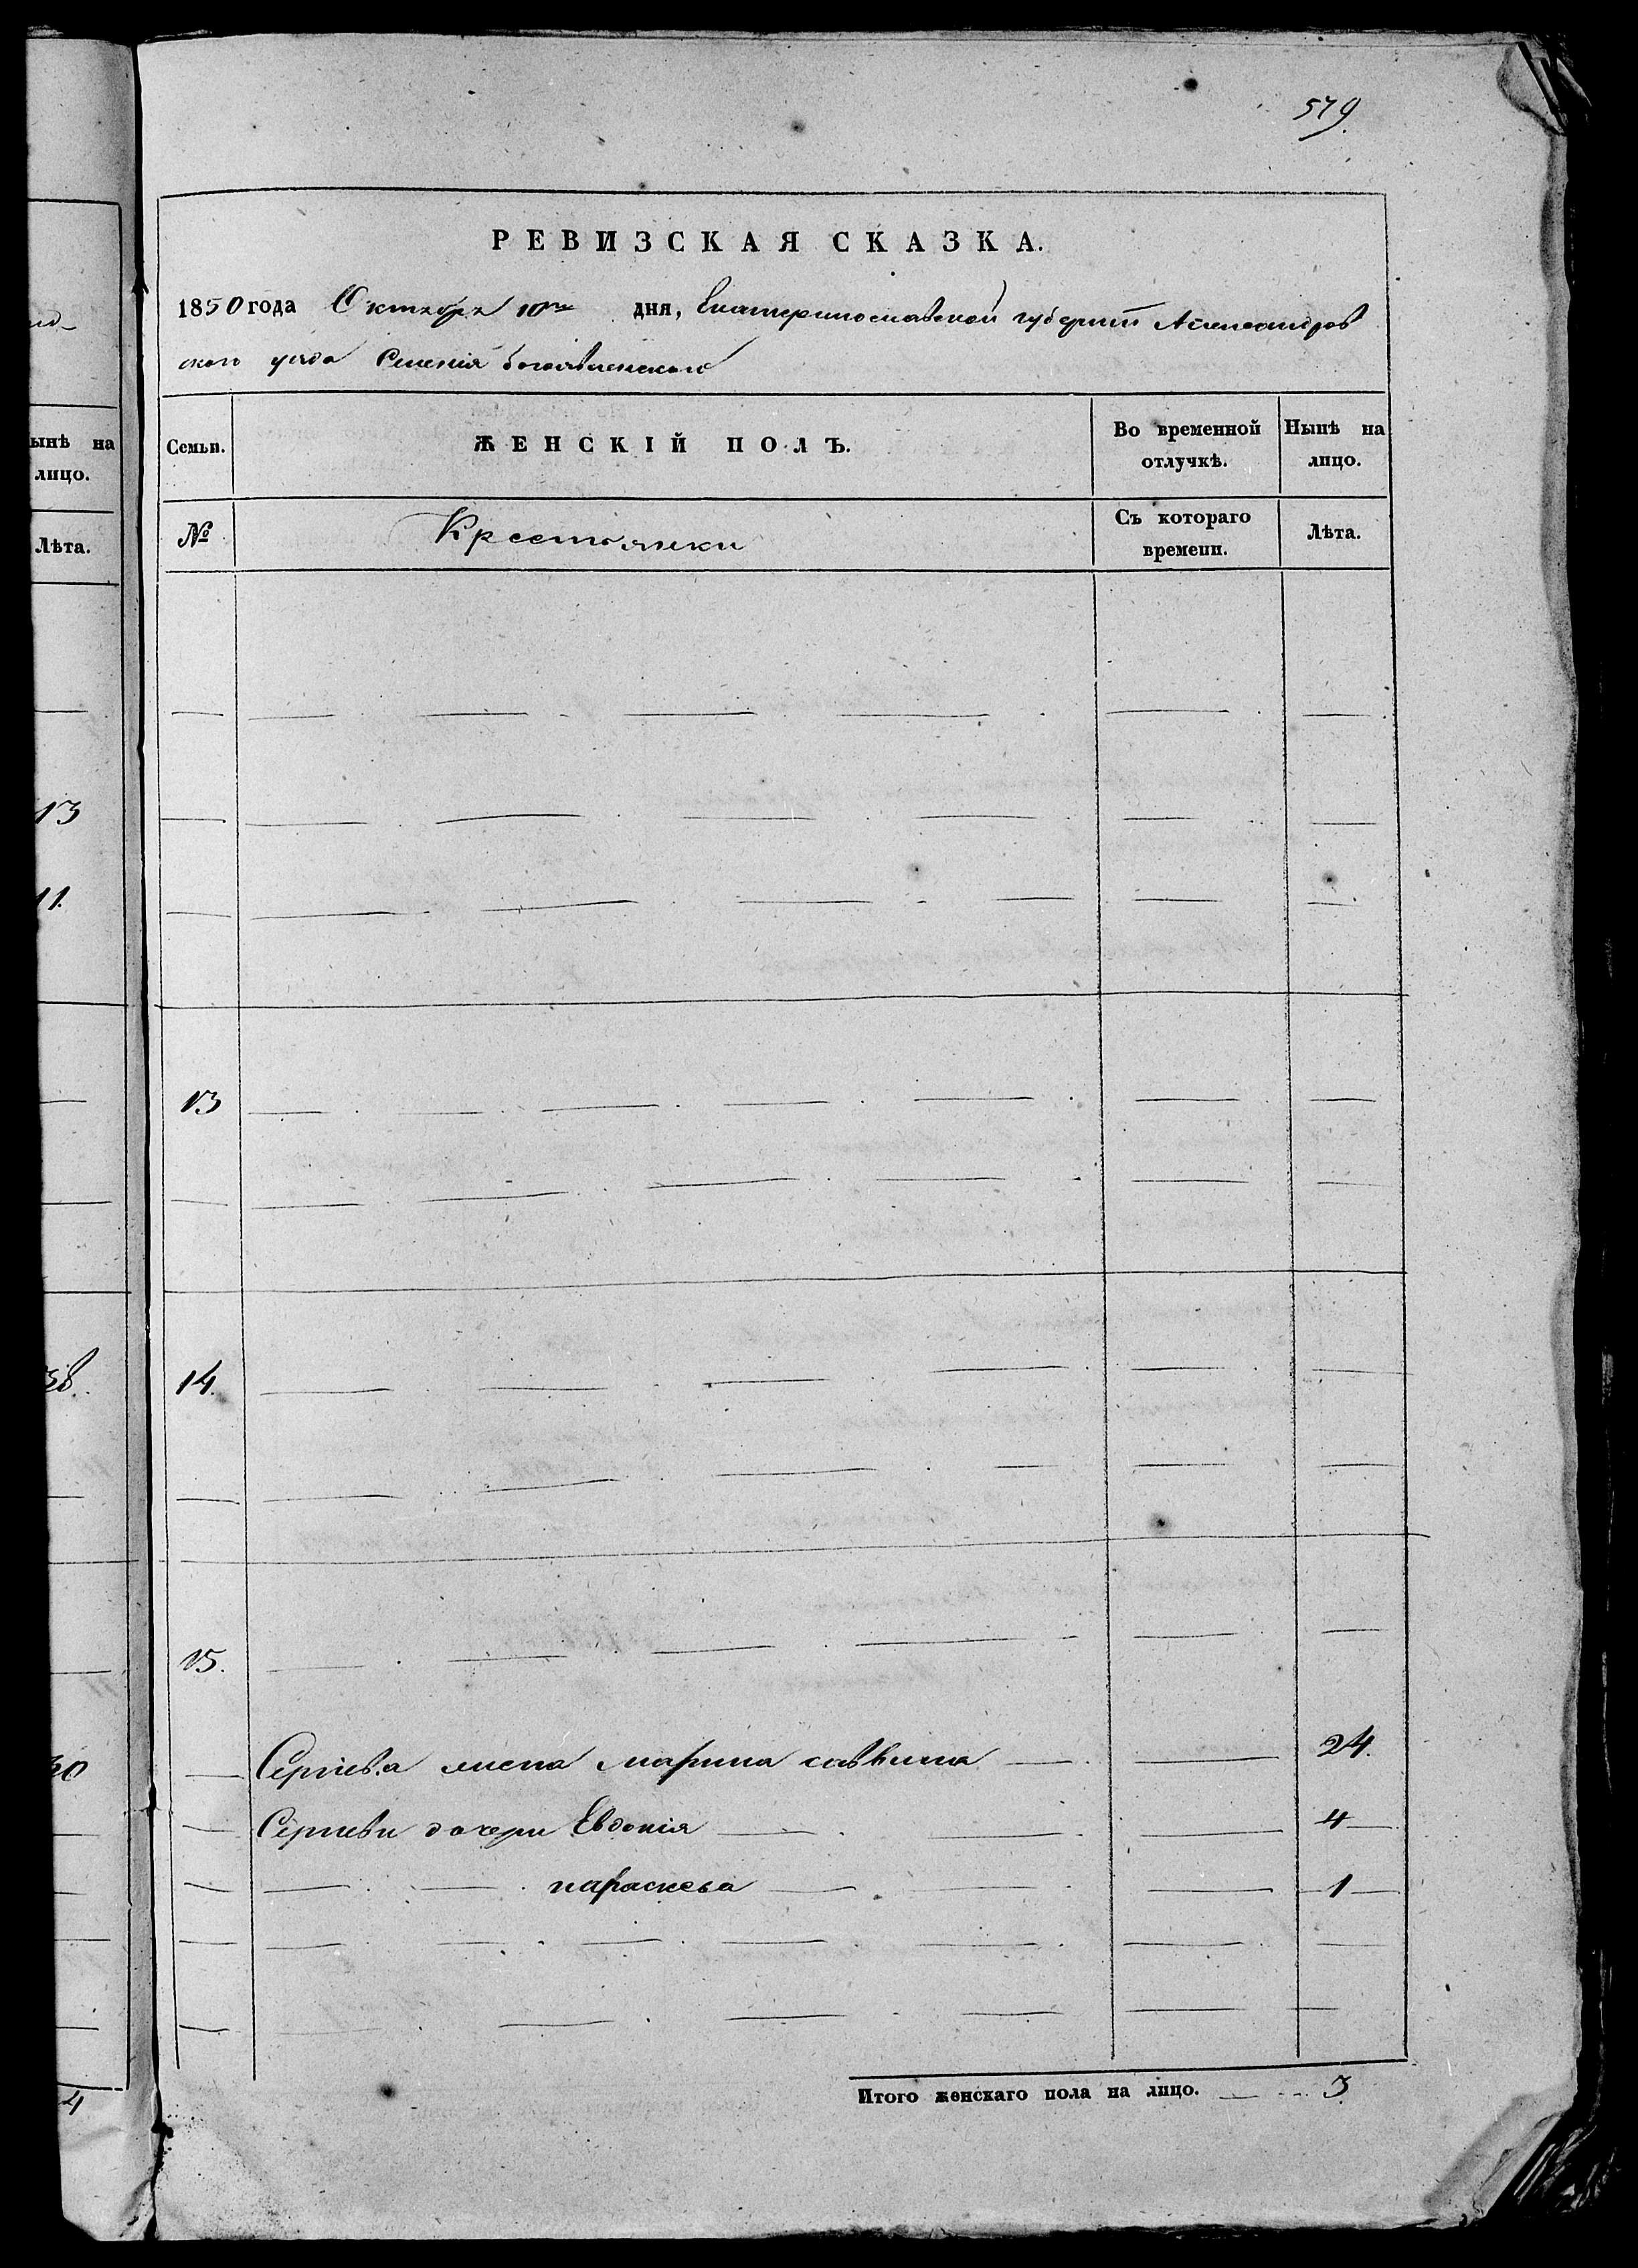 579.
РЕВИЗСКАЯ СКАЗКА.
1850 года Октября 10го дня, Екатеринославской губерніи Александров
скаго уезда Селенія богоявленскаго
ынѣ на
лицо.
Лѣта.
13
11.
30
4
Семьи.
ЖЕНСКІЙ ПОЛЪ.
Во временной
отлучкѣ.
Нынѣ на
лицо.
№
Крестьянки
Съ котораго
времени.
Лѣта.
13
14.
15.
Сергіева жена марина саввина — — 24.
Сергиеви дочери Евдокія — — — 4
— — параскева — — — 1
Итого женскаго пола на лицо. — 3.